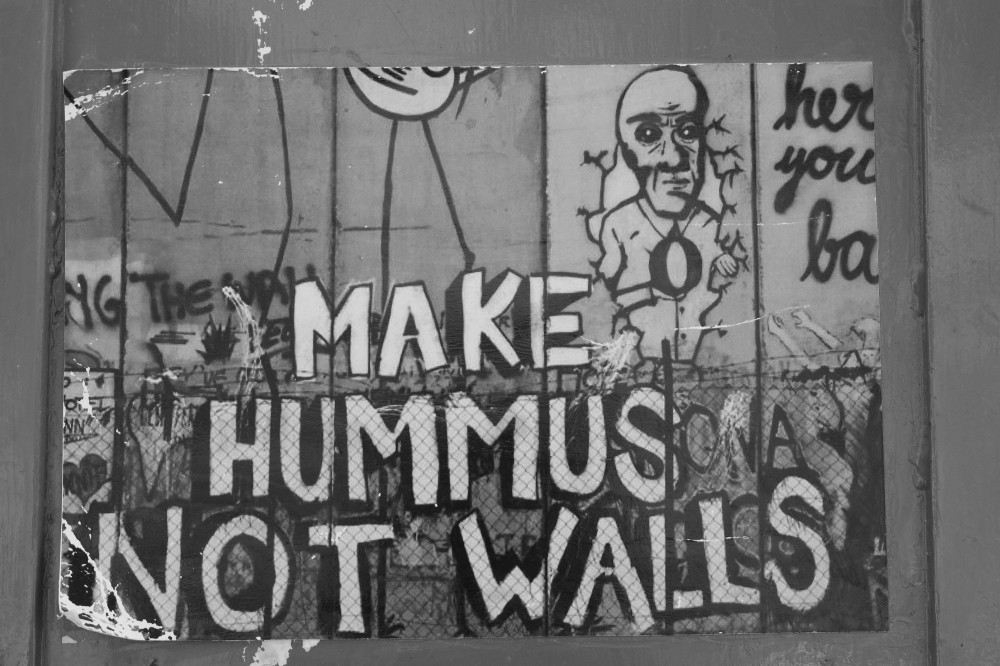 her
you
ba
THE WAY
MAKE
HUMMUS
NOT WALLS